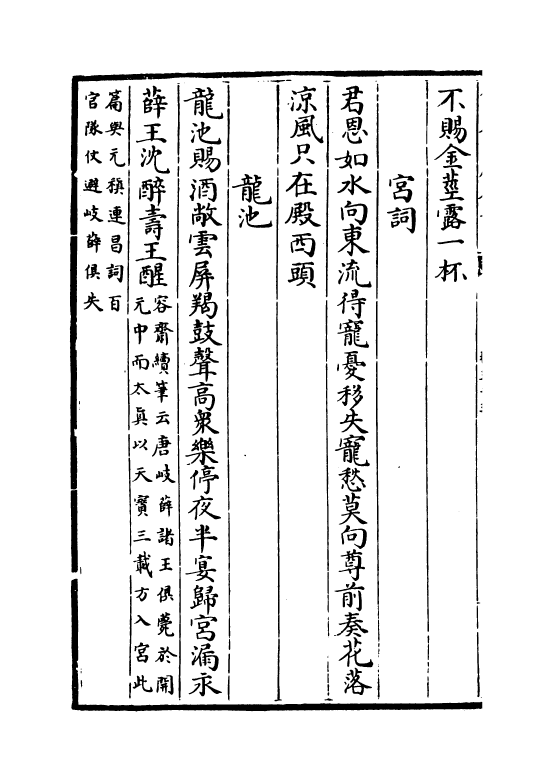 不賜金莖露一杯
宮詞
君恩如水向東流得寵憂移失寵愁莫向尊前奏花落
涼風只在殿西頭
龍池
龍池賜酒敞雲屏羯鼓聲高衆樂停夜半宴歸宮漏永
薛王沈醉壽王醒容齋續筆云唐岐薛諸王俱薨於開
元中而太真以天寶三載方入宮此
篇與元稹連昌詞百
官隊仗避岐薛俱失